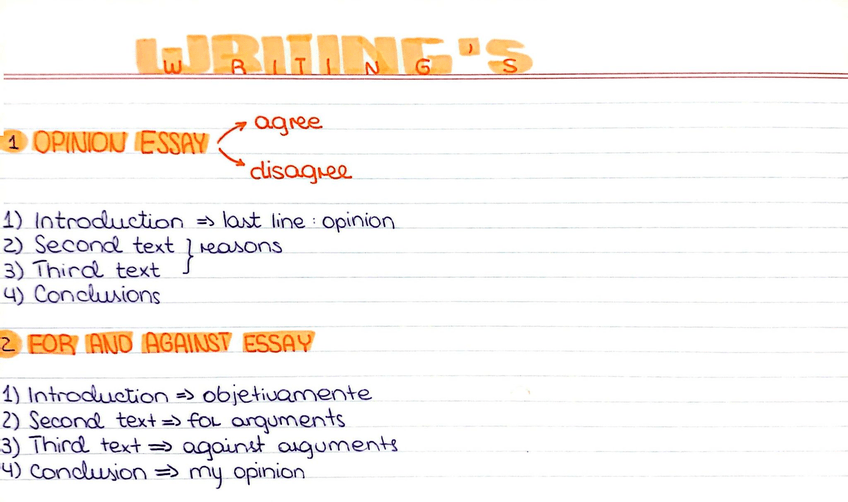 WRITING'S
1 OPINION ESSAY
agree
disagree
1) Introduction => last line : opinion
2) Second text } reasons
3) Third text
4) Conclusions
2 FOR AND AGAINST ESSAY
1) Introduction => objetivamente
2) Second text => for arguments
3) Third text => against arguments
4) Conclusion => my opinion